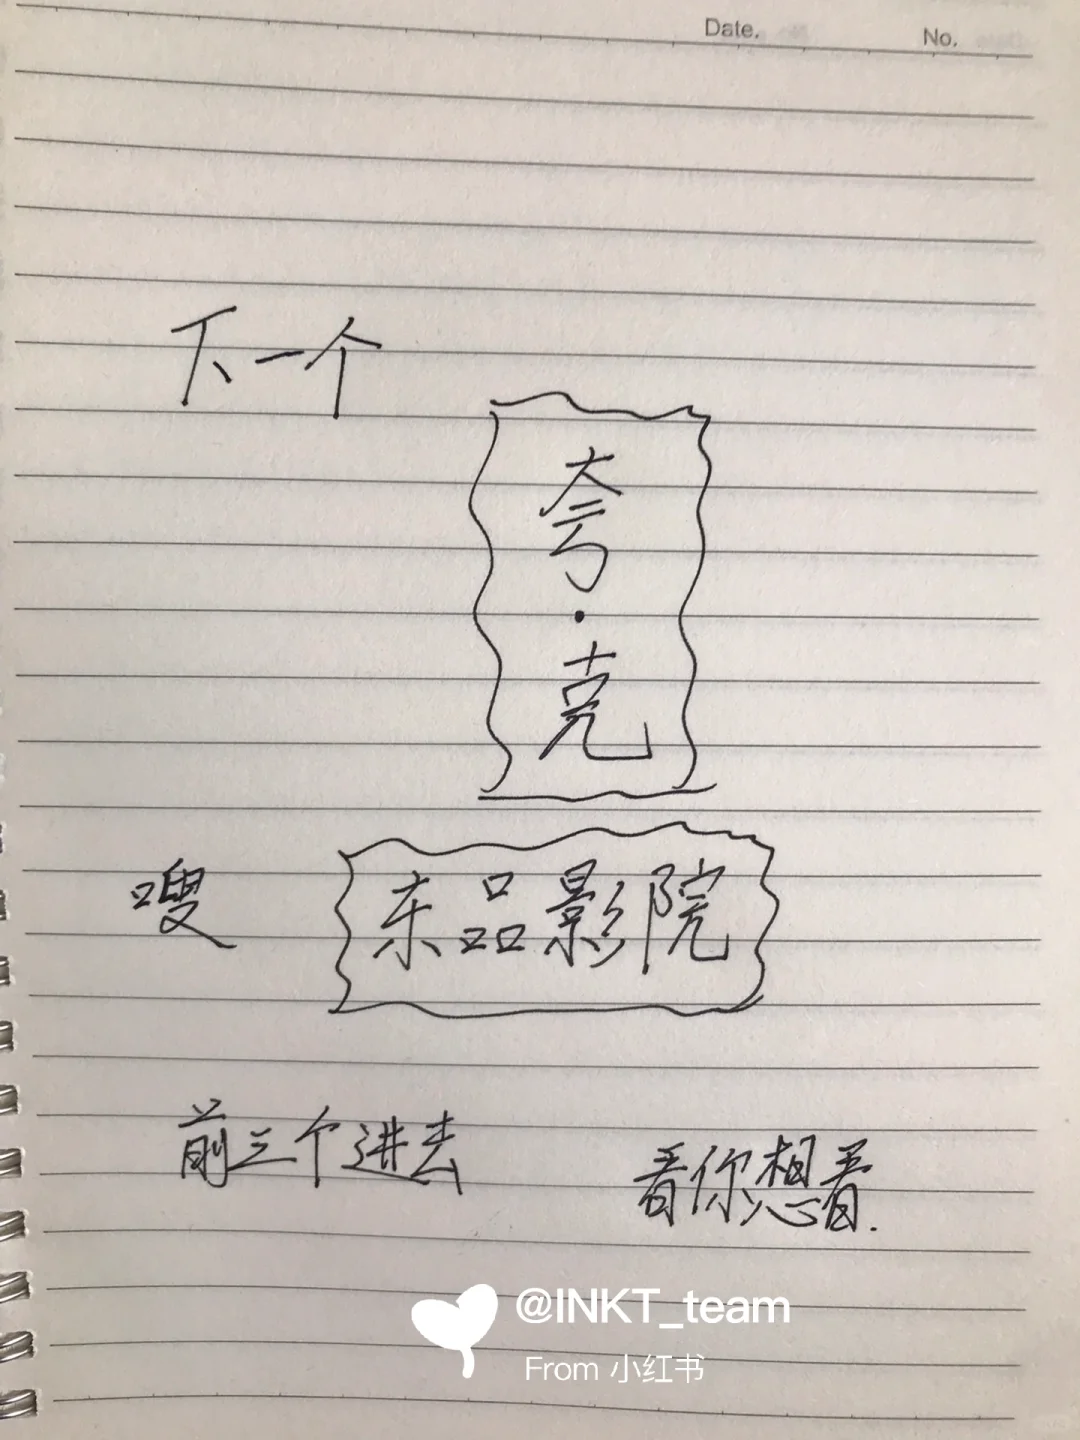 Date.
No.
下一个
夸·克
嗖
东品影院
前三个进去
看你想看.
@INKT_team
From 小红书